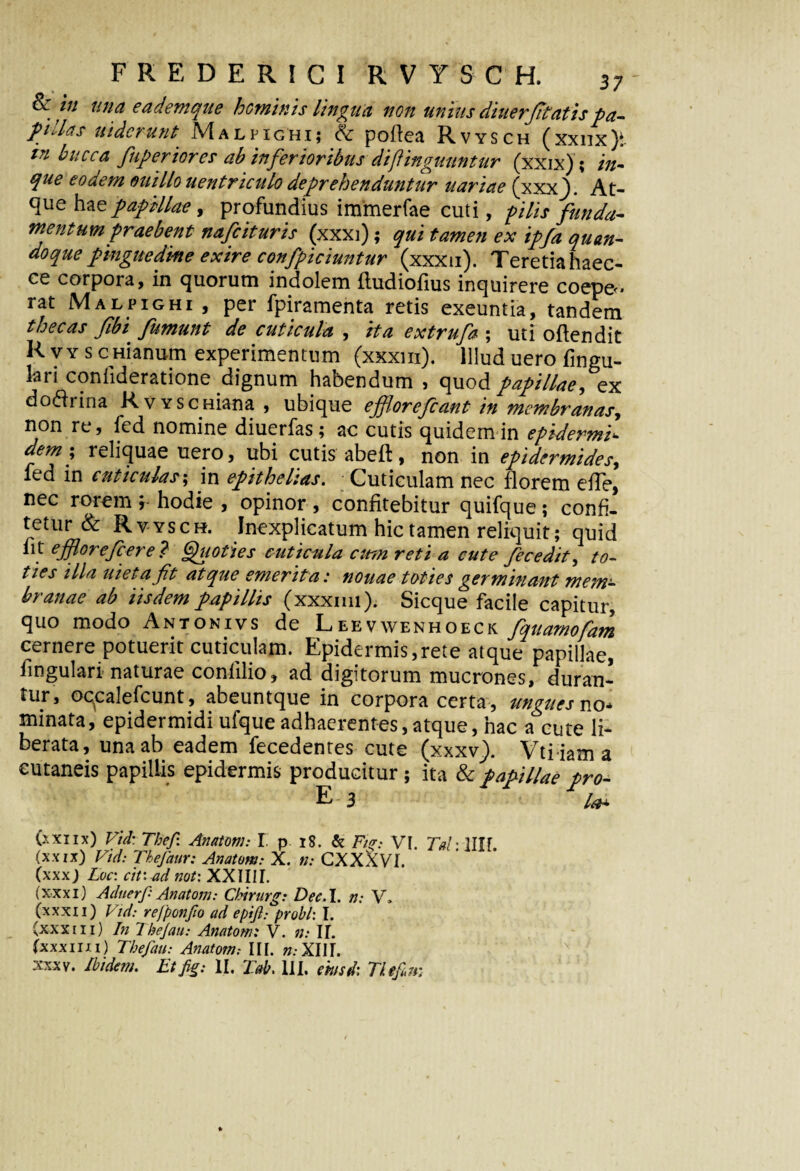 FREDERICI RVYSCH. 37
& in una eademque hominis lingua non unius diuerſitatis pa-
pillas uiderunt MALPIGHI; & poſtea RVYSCH (XXIIX);
in bucca ſuperiores ab inferioribus diſtinguuntur (XXIX); in-
que eodem ouillo uentriculo deprehenduntur uariae (XXX). At-
que hae papillae, profundius immerſae cuti, pilis funda-
mentum praebent naſcituris (XXXI); qui tamen ex ipſa quan-
doque pinguedine exire conſpiciuntur (XXXII). Teretia haec-
ce corpora, in quorum indolem ſtudioſius inquirere coepe-
rat MALPIGHI, per ſpiramenta retis exeuntia, tandem
thecas ſibi ſumunt de cuticula, ita extruſa; uti oſtendit
RVYSCHianum experimentum (XXXIII). Illud uero ſingu-
lari conſideratione dignum habendum, quod papillae, ex
doctrina RVYSCHiana, ubique efflorefcant in membranas,
non re, ſed nomine diuerſas; ac cutis quidem in epidermi-
dem; reliquae uero, ubi cutis abeſt, non in epidermides,
ſed in cuticulas; in epithelias. Cuticulam nec florem eſſe,
nec rorem; hodie, opinor, confitebitur quiſque; confi-
tetur & RVYSCH. Inexplicatum hic tamen reliquit; quid
ſit effloreſcere? Quoties cuticula cum reti a cute ſecedit, to-
ties illa uieta ſit atque emerita: nouae toties germinant mem-
branae ab iisdem papillis (XXXIIII). Sicque facile capitur,
quo modo ANTONIVS de LEEVWENHOECK ſquamoſam
cernere potuerit cuticulam. Epidermis, rete atque papillae,
ſingulari naturae conſilio, ad digitorum mucrones, duran-
tur, occaleſcunt, abeuntque in corpora certa, ungues no-
minata, epidermidi uſque adhaerentes, atque, hac a cute li-
berata, una ab eadem ſecedentes cute (XXXV). Vti iam a
cutaneis papillis epidermis producitur; ita & papillae pro-
E 3 la-
(XXIIX) Vid: Theſ: Anatom: I. p. 18. & Fig: VI. Tal: IIII.
(XXIX) Vid: Theſaur: Anatom: X. n: CXXXVI.
(XXX) Loc: cit: ad not: XXIIII.
(XXXI) Aduerſ: Anatom: Chirurg: Dec. I. n: V.
(XXXII) Vid: reſponſio ad epiſt: probl: I.
(XXXIII) In Theſau: Anatom: V. n: II.
(XXXIIII) Theſau: Anatom: III. n: XIII.
XXXV. Ibidem. Et fig: II. Tab. III. eiusd: Theſau: